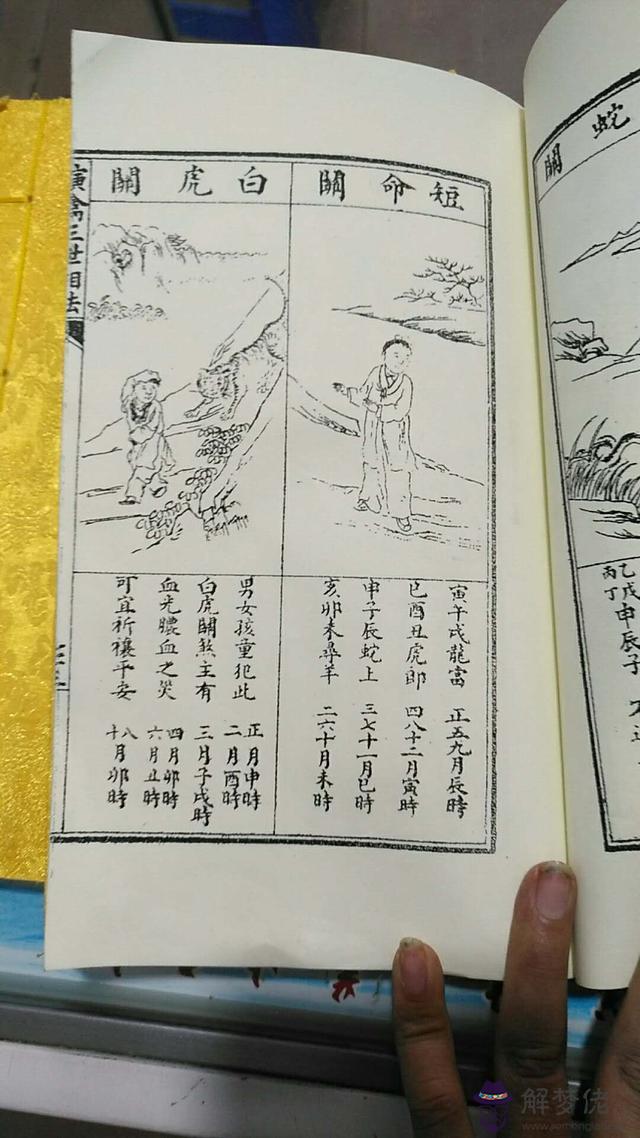 短命關
寅午戌龍富
巳酉丑虎郎
申子辰蛇上
亥卯未尋羊
正五九月辰時
四八十二月寅時
三七十一月巳時
二六十月未時
白虎關
男女孩童犯此
白虎關煞主有
血光膿血之災
可宜祈禳平安
正月申時
二月酉時
三月子戌時
四月卯時
六月丑時
八月卯時
十
演禽三世相法
蛇關
乙戊申辰子
丙丁
解梦佬